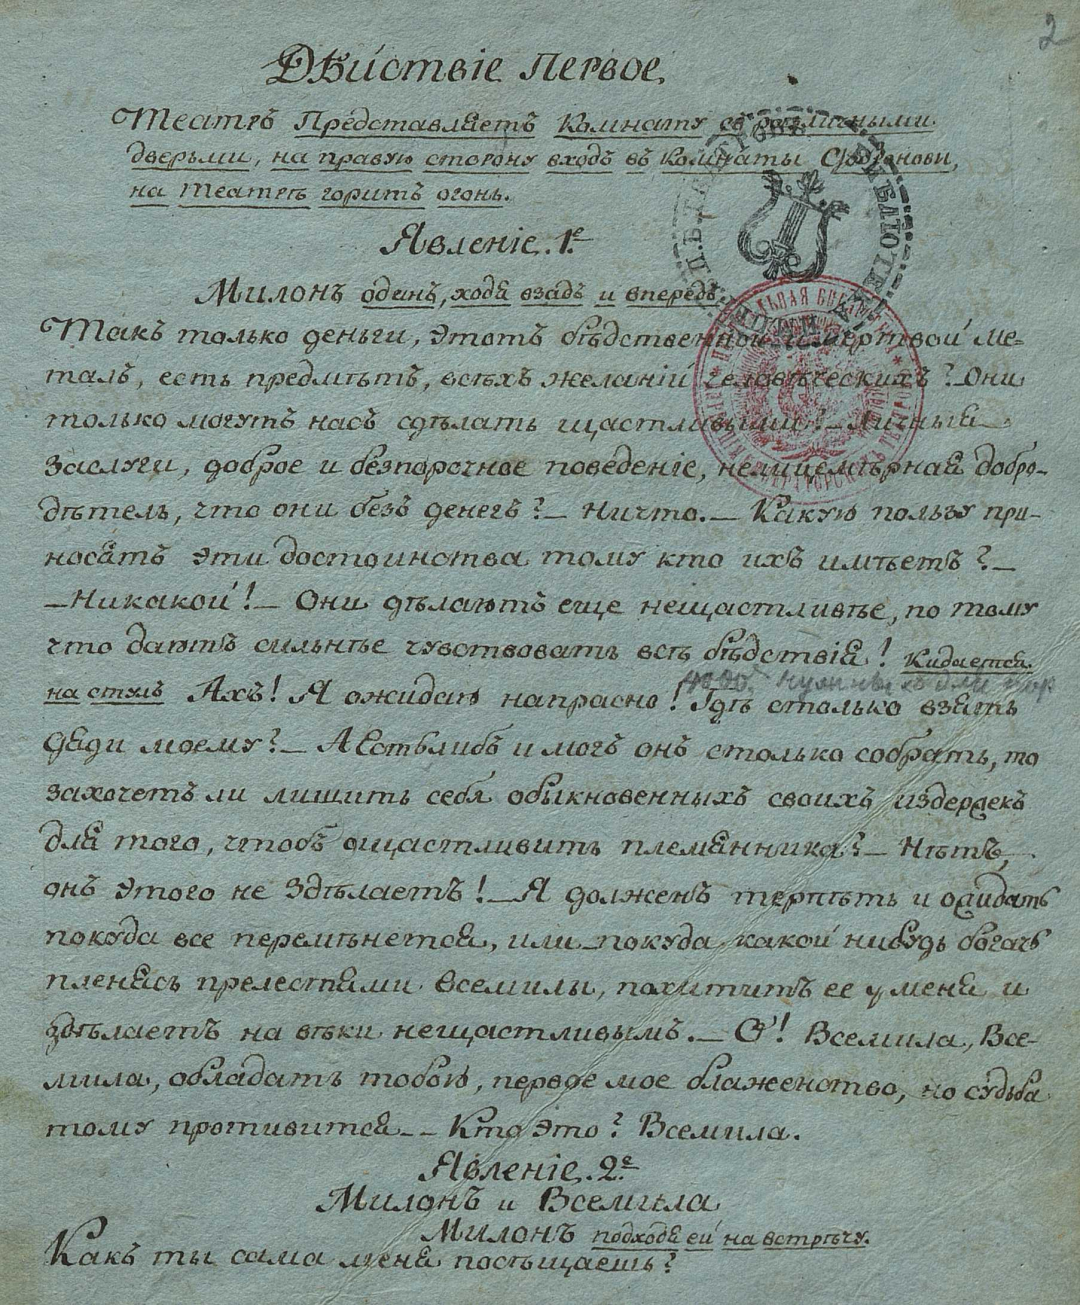 2
Дѣйствіе Первое.
Театръ Представляетъ Комнату съ различными
дверьми, на правую сторону входъ въ комнаты
на Театрѣ горитъ огонь.
Явленіе 1е
Милонъ одинъ, ходя взадъ и впередъ.
Такъ только деньги, этотъ бѣдственной и мертвой ме-
талъ, есть предмѣтъ, всѣхъ желаніи человѣческихъ? Они
только могутъ насъ сдѣлать щастливыми? — Личныя
заслуги, доброе и безпорочное поведеніе, нелицемѣрная добро-
дѣтель, что они безъ денегъ? — Ничто. — Какую пользу при-
носятъ эти достоинства тому кто ихъ имѣетъ? —
— Никакой! — Они дѣлаютъ еще нещастливѣе, по тому
что даютъ сильнѣе чувствовать всѣ бѣдствія! Кидается
на стулъ Ахъ! Я ожидаю напрасно! Гдѣ столько взять
4000.
дяди моему? — А Естьлибъ и могъ онъ столько собрать, то
захочетъ ли лишить себя обыкновенныхъ своихъ издержекъ
для того, чтобъ ощастливить племянника? — Нѣтъ,
онъ этого не здѣлаетъ! — Я долженъ терпѣть и ожидать
покуда все перемѣнется, или покуда какой нибудь богачь
пленясь прелестями Всемилы, похититъ ее у меня и
здѣлаетъ на вѣки нещастливымъ. — О! Всемила, Все-
мила, обладать тобою, первое мое блаженство, но судьба
тому противится — — Кто это? Всемила.
Явленіе 2е
Милонъ и Всемила
Милонъ подходя ей на встрѣчу.
Какъ ты сама меня посѣщаешь?